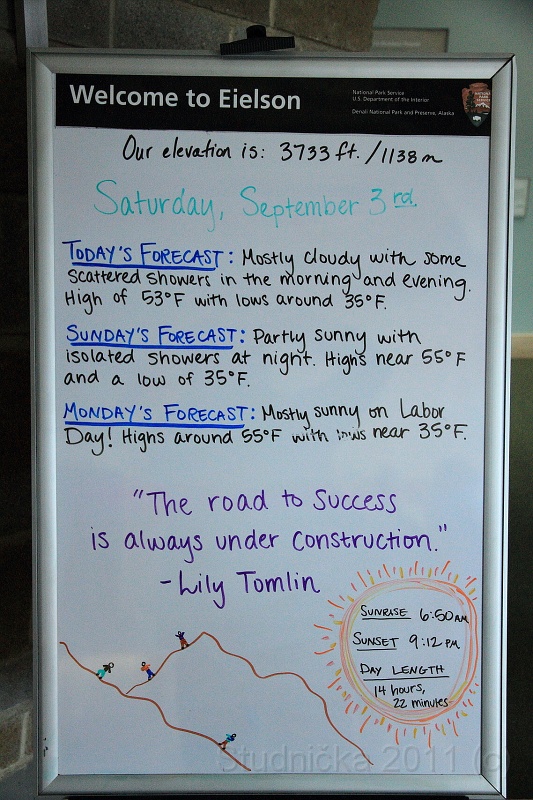 Welcome to Eielson
National Park Service
U.S. Department of the Interior
Denali National Park and Preserve, Alaska
Our elevation is: 3733 ft. / 1138 m
Saturday, September 3rd.
TODAY'S FORECAST: Mostly cloudy with some
scattered showers in the morning and evening.
High of 53°F with lows around 35°F.
SUNDAY'S FORECAST: Partly sunny with
isolated showers at night. Highs near 55°F
and a low of 35°F.
MONDAY'S FORECAST: Mostly sunny on Labor
Day! Highs around 55°F with lows near 35°F.
"The road to success
is always under construction."
-Lily Tomlin
SUNRISE 6:50 AM
SUNSET 9:12 PM
DAY LENGTH
14 hours,
22 minutes
Studnička 2011 (c)